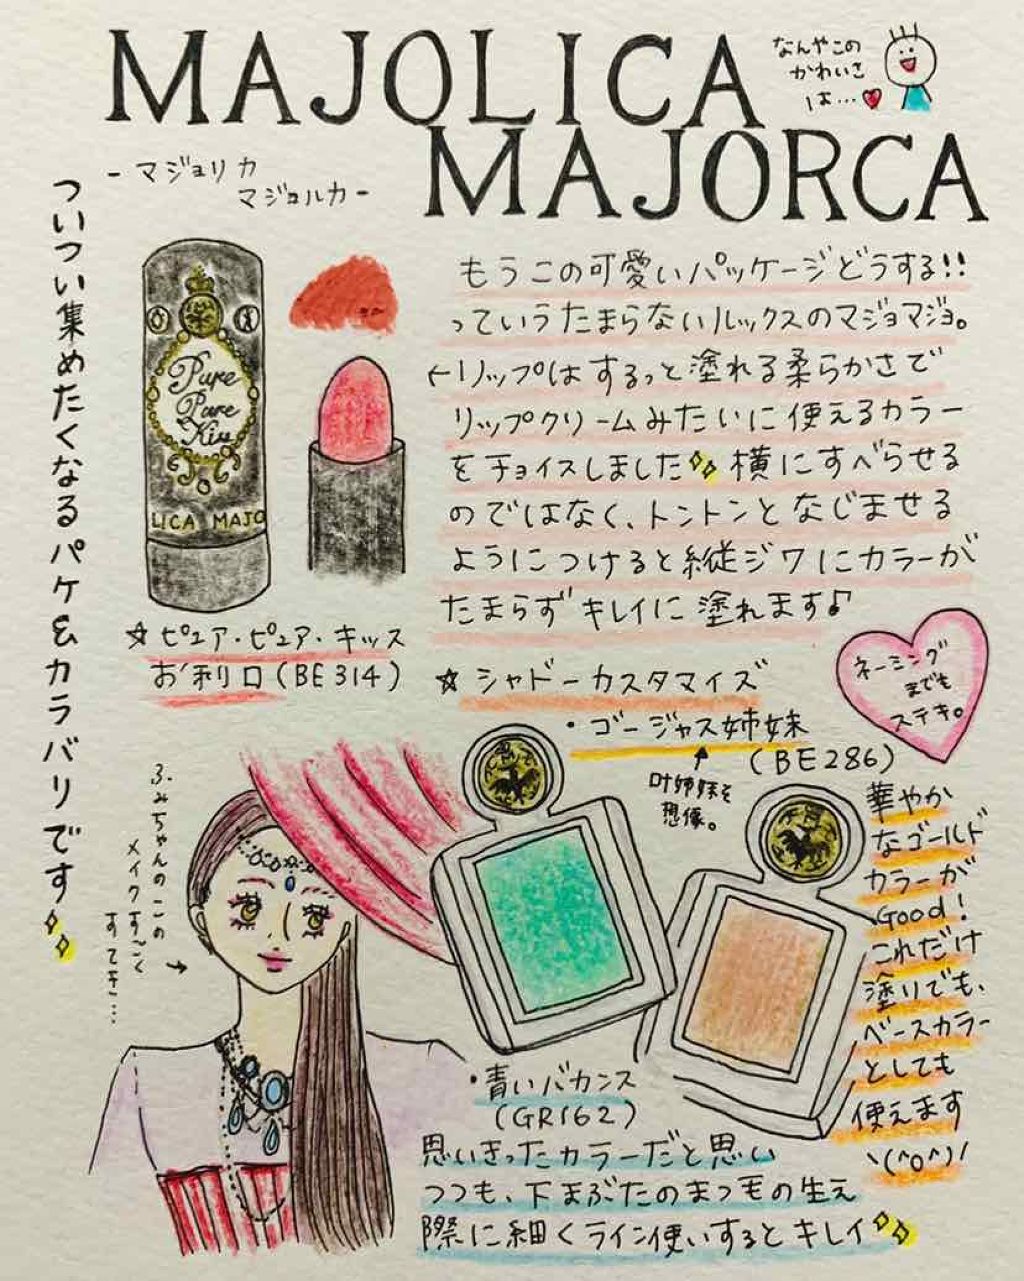 MAJOLICA
MAJORCA
なんやこの
かわいさ
は…
-マジョリカ
マジョルカ-
ついつい集めたくなるパケ&カラバリです
もうこの可愛いパッケージどうする!!
っていうたまらないルックスのマジョマジョ。
←リップはするっと塗れる柔らかさで
リップクリームみたいに使えるカラー
をチョイスしました 横にすべらせる
のではなく、トントンとなじませる
ようにつけると縦ジワにカラーが
たまらずキレイに塗れます♪
Pure
Pure
Kiss
LICA MAJO
☆ピュア・ピュア・キッス
お利口(BE314)
ネーミング
までも
ステキ。
☆シャドーカスタマイズ
・ゴージャス姉妹
(BE286)
叶姉妹を
想像。
華やか
なゴールド
カラーが
Good!
これだけ
塗りでも、
ベースカラー
としても
使えます
\(^o^)/
ふみちゃんのこの
メイクすごく
すてき…
・青いバカンス
(GR162)
思いきったカラーだと思い
つつも、下まぶたのまつ毛の生え
際に細くライン使いするとキレイ